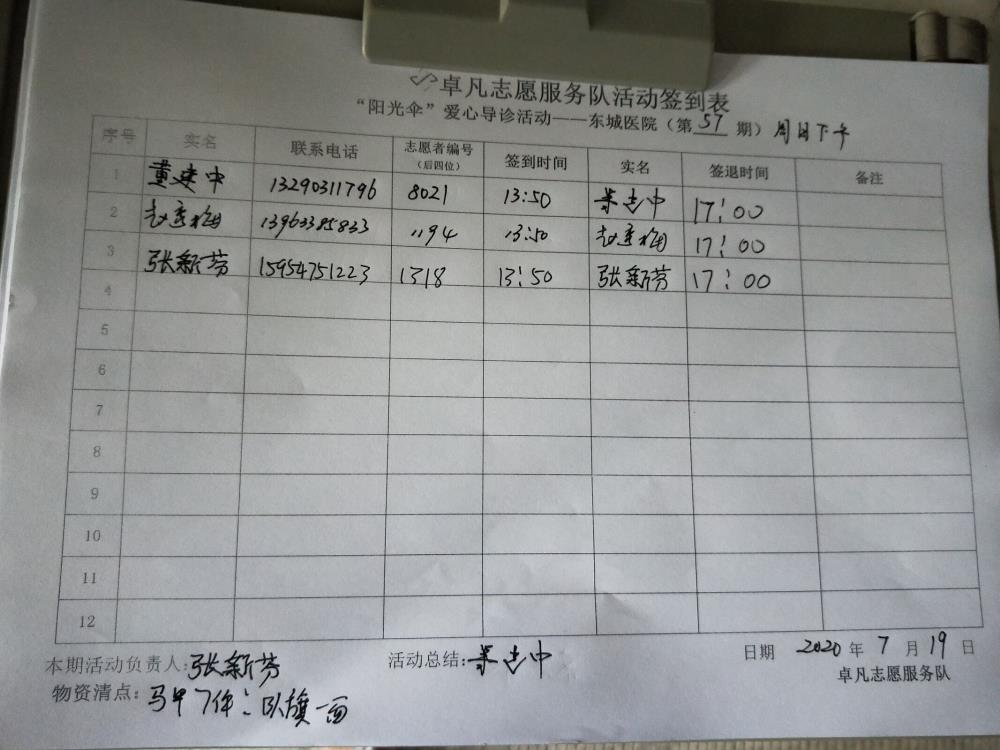 卓凡志愿服务队活动签到表
“阳光伞”爱心导诊活动——东城医院（第57期）周日下午
序号 实名 联系电话 志愿者编号（后四位） 签到时间 实名 签退时间 备注
1 董建中 13290311796 8021 13:50 17:00
2 赵秀梅 13963385833 1194 13:50 赵秀梅 17:00
3 张新芬 15954751223 1318 13:50 张新芬 17:00
4
5
6
7
8
9
10
11
12
本期活动负责人:张新芬 活动总结: 日期 2020年7月19日
物资清点:马甲7件;队旗一面 卓凡志愿服务队